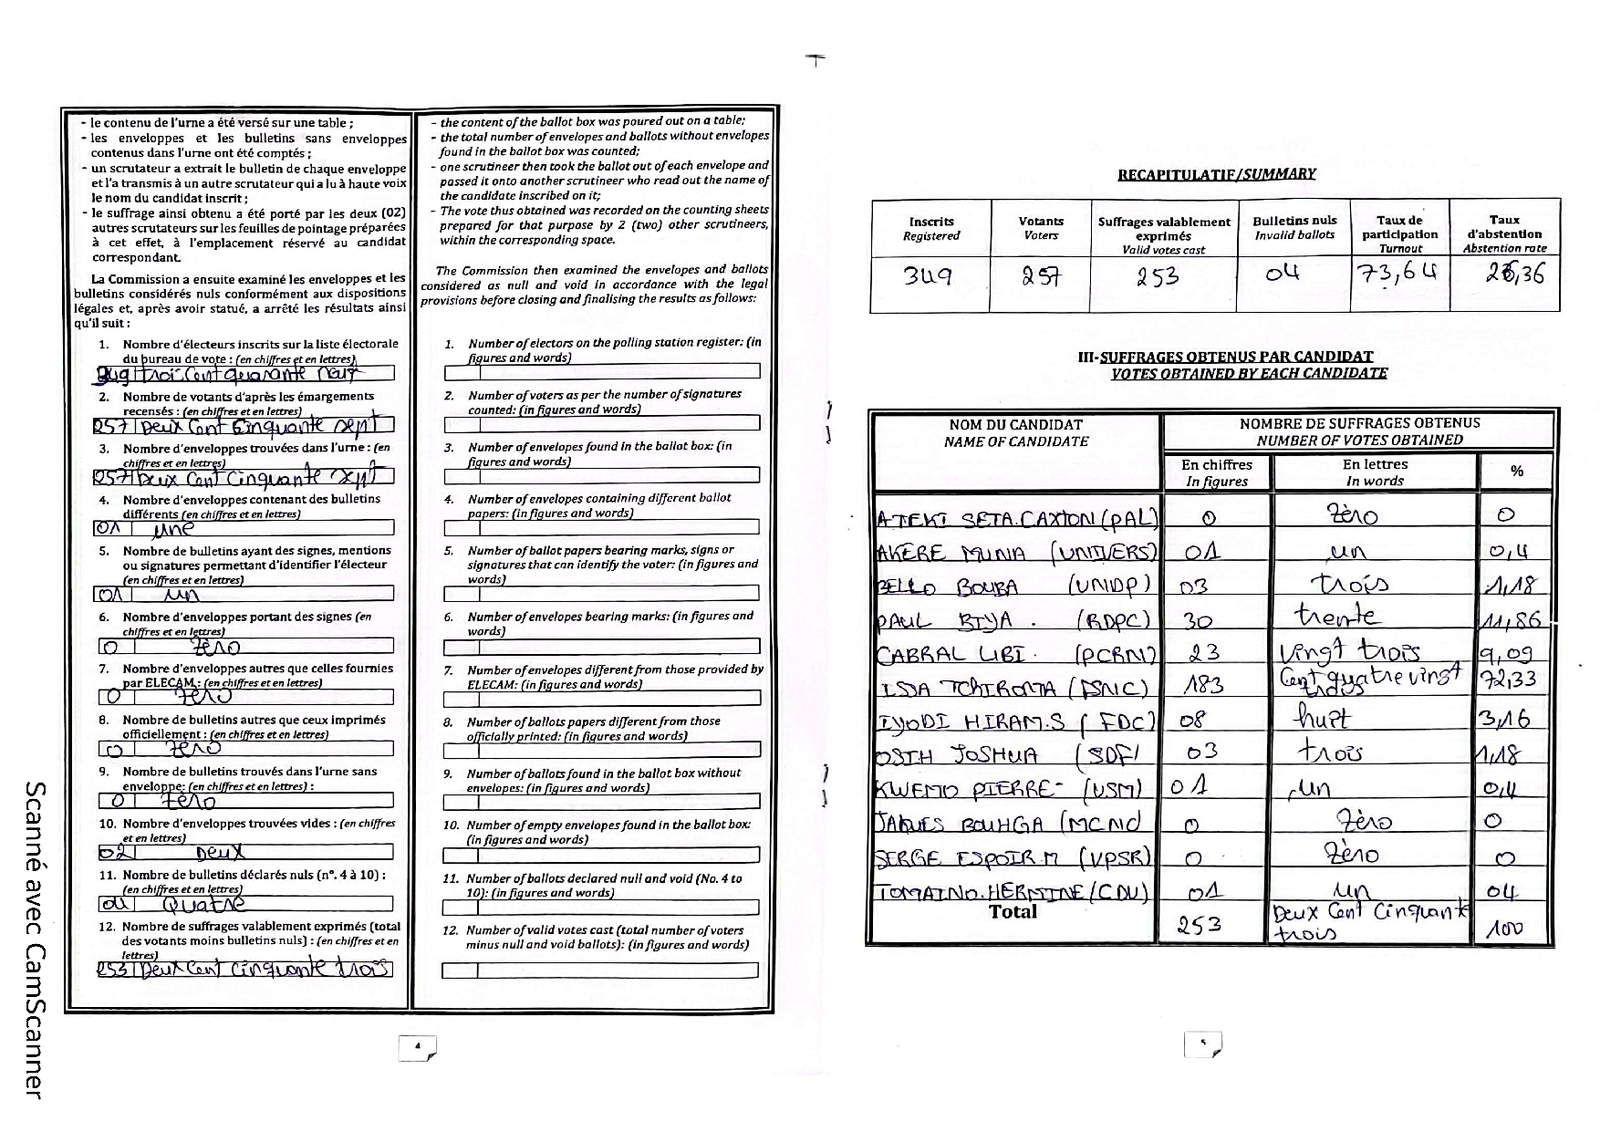 - le contenu de l'urne a été versé sur une table ;
- les enveloppes et les bulletins sans enveloppes
contenus dans l'urne ont été comptés ;
- un scrutateur a extrait le bulletin de chaque enveloppe
et l'a transmis à un autre scrutateur qui a lu à haute voix
le nom du candidat inscrit ;
- le suffrage ainsi obtenu a été porté par les deux (02)
autres scrutateurs sur les feuilles de pointage préparées
à cet effet, à l'emplacement réservé au candidat
correspondant.
La Commission a ensuite examiné les enveloppes et les
bulletins considérés nuls conformément aux dispositions
légales et, après avoir statué, a arrêté les résultats ainsi
qu'il suit :
1. Nombre d'électeurs inscrits sur la liste électorale
du bureau de vote : (en chiffres et en lettres)
349 trois Cent quarante neuf
2. Nombre de votants d'après les émargements
recensés : (en chiffres et en lettres)
257 Deux Cent Cinquante sept
3. Nombre d'enveloppes trouvées dans l'urne : (en
chiffres et en lettres)
257 Deux Cent Cinquante sept
4. Nombre d'enveloppes contenant des bulletins
différents (en chiffres et en lettres)
01 une
5. Nombre de bulletins ayant des signes, mentions
ou signatures permettant d'identifier l'électeur
(en chiffres et en lettres)
01 un
6. Nombre d'enveloppes portant des signes (en
chiffres et en lettres)
0 Zéro
7. Nombre d'enveloppes autres que celles fournies
par ELECAM : (en chiffres et en lettres)
0 Zéro
8. Nombre de bulletins autres que ceux imprimés
officiellement : (en chiffres et en lettres)
0 Zéro
9. Nombre de bulletins trouvés dans l'urne sans
enveloppe: (en chiffres et en lettres) :
0 Zéro
10. Nombre d'enveloppes trouvées vides : (en chiffres
et en lettres)
02 Deux
11. Nombre de bulletins déclarés nuls (n°. 4 à 10) :
(en chiffres et en lettres)
04 Quatre
12. Nombre de suffrages valablement exprimés (total
des votants moins bulletins nuls) : (en chiffres et en
lettres)
253 Deux Cent Cinquante trois
- the content of the ballot box was poured out on a table;
- the total number of envelopes and ballots without envelopes
found in the ballot box was counted;
- one scrutineer then took the ballot out of each envelope and
passed it onto another scrutineer who read out the name of
the candidate inscribed on it;
- The vote thus obtained was recorded on the counting sheets
prepared for that purpose by 2 (two) other scrutineers,
within the corresponding space.
The Commission then examined the envelopes and ballots
considered as null and void in accordance with the legal
provisions before closing and finalising the results as follows:
1. Number of electors on the polling station register: (in
figures and words)
2. Number of voters as per the number of signatures
counted: (in figures and words)
3. Number of envelopes found in the ballot box: (in
figures and words)
4. Number of envelopes containing different ballot
papers: (in figures and words)
5. Number of ballot papers bearing marks, signs or
signatures that can identify the voter: (in figures and
words)
6. Number of envelopes bearing marks: (in figures and
words)
7. Number of envelopes different from those provided by
ELECAM: (in figures and words)
8. Number of ballots papers different from those
officially printed: (in figures and words)
9. Number of ballots found in the ballot box without
envelopes: (in figures and words)
10. Number of empty envelopes found in the ballot box:
(in figures and words)
11. Number of ballots declared null and void (No. 4 to
10): (in figures and words)
12. Number of valid votes cast (total number of voters
minus null and void ballots): (in figures and words)
4
RECAPITULATIF/SUMMARY
Inscrits Votants Suffrages valablement Bulletins nuls Taux de Taux
Registered Voters exprimés Invalid ballots participation d'abstention
Valid votes cast Turnout Abstention rate
349 257 253 04 73,64 26,36
III-SUFFRAGES OBTENUS PAR CANDIDAT
VOTES OBTAINED BY EACH CANDIDATE
NOM DU CANDIDAT NOMBRE DE SUFFRAGES OBTENUS
NAME OF CANDIDATE NUMBER OF VOTES OBTAINED
En chiffres En lettres %
In figures In words
ATEKI SETA.CAXTON (PAL) 0 Zéro 0
AKERE MUNA (UNIVERS) 01 un 0,4
BELLO BOUBA (UNDP) 03 trois 1,18
PAUL BIYA . (RDPC) 30 trente 11,86
CABRAL LIBI . (PCRN) 23 Vingt trois 9,09
ISSA TCHIROMA (FSNC) 183 Cent quatre vingt trois 72,33
IYODI HIRAM.S ( FDC) 08 huit 3,16
OSIH JOSHUA (SDF) 03 trois 1,18
KWEMO PIERRE- (USM) 01 un 0,4
JAQUES BOUHGA (MCNC 0 Zéro 0
SERGE ESPOIR.M (UPSR) 0 Zéro 0
TOMAINO.HERMINE (CDU) 01 un 04
Total 253 Deux Cent Cinquante trois 100
5
Scanné avec CamScanner